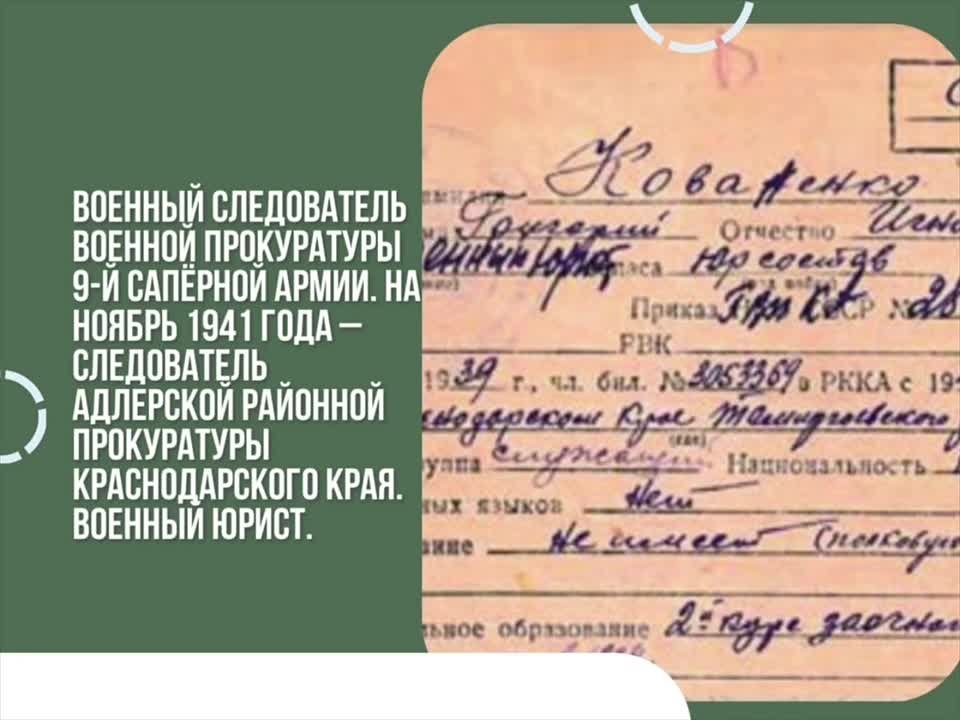 ВОЕННЫЙ СЛЕДОВАТЕЛЬ
ВОЕННОЙ ПРОКУРАТУРЫ
9-Й САПЁРНОЙ АРМИИ. НА
НОЯБРЬ 1941 ГОДА –
СЛЕДОВАТЕЛЬ
АДЛЕРСКОЙ РАЙОННОЙ
ПРОКУРАТУРЫ
КРАСНОДАРСКОГО КРАЯ.
ВОЕННЫЙ ЮРИСТ.
Коваленко
Григорий Отчество Игна
Юрсостав
Приказ № 28
РВК
1939 г., чл. бил. № 3053369 в РККА с 19
нодарском Крае
уппа служащий Национальность
ных языков Нет
ание Не имеет (полковую
льное образование 2й курс заочно